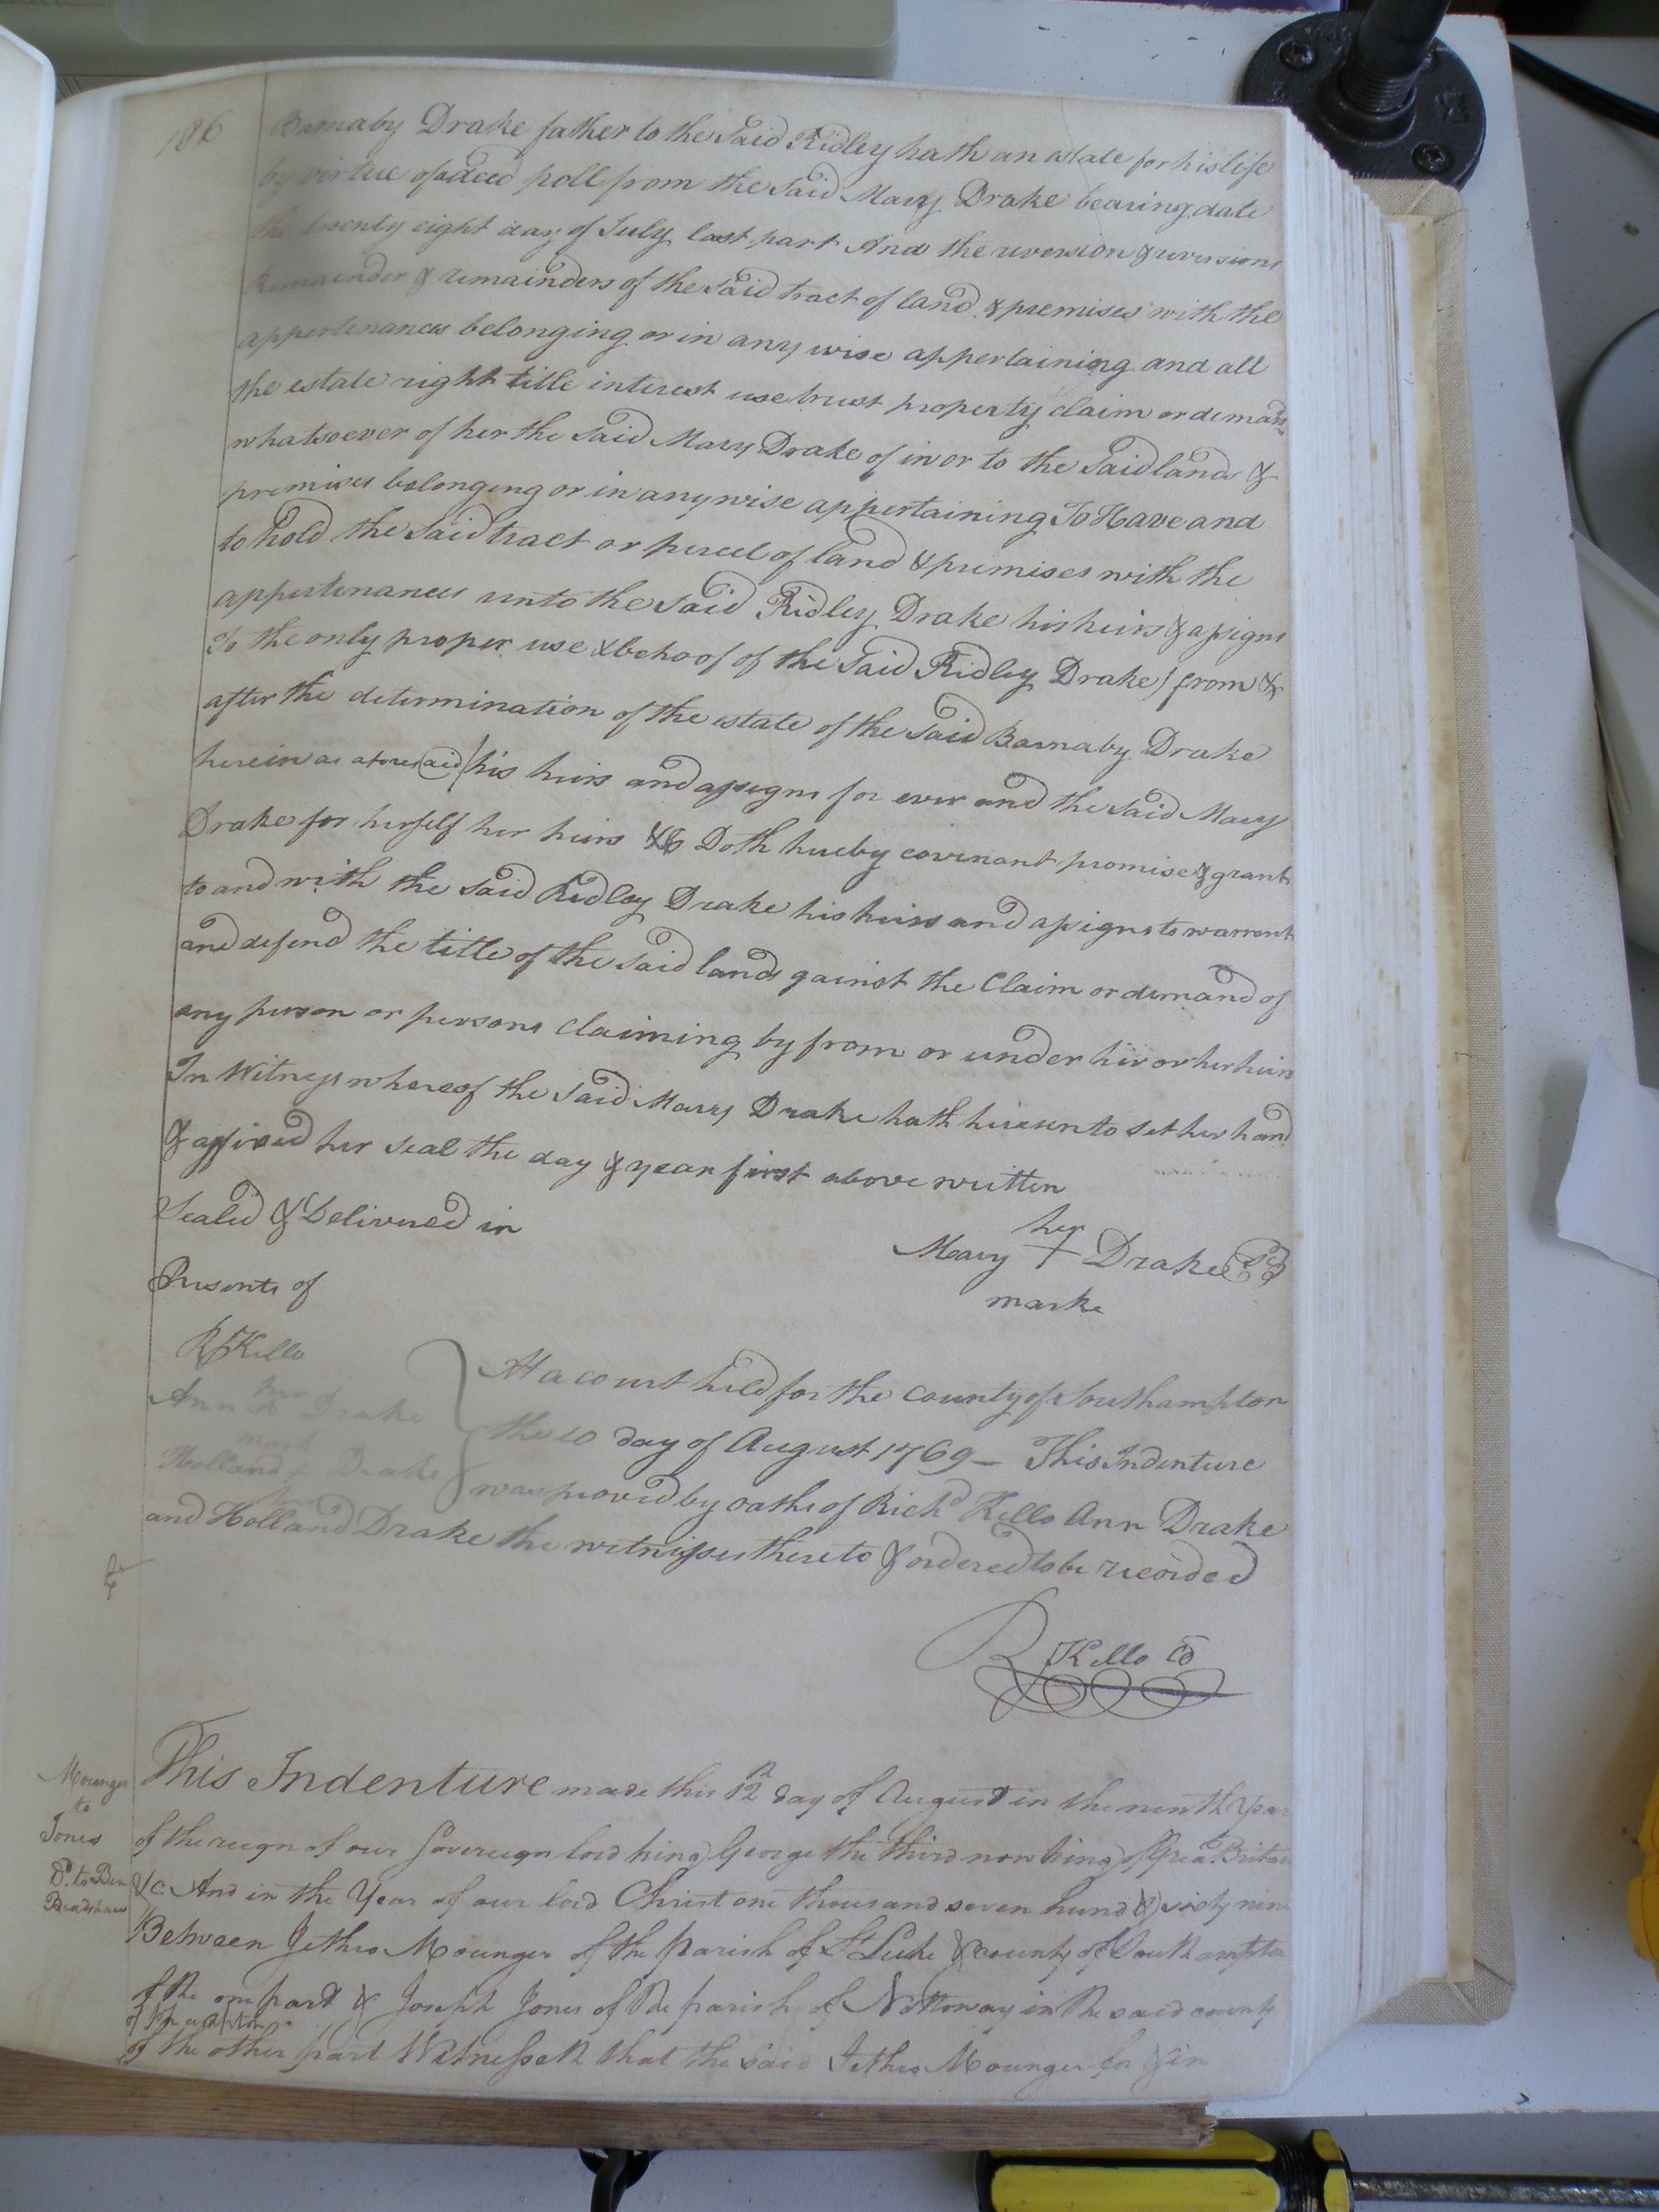 186
Barnaby Drake father to the Said Ridley hath an estate for his life
by virtue of a deed poll from the Said Mary Drake bearing date
the twenty eight day of July last part And the reversion & reversions
Remainder & remainders of the Said tract of land & premises with the
appertenances belonging or in any wise appertaining and all
the estate right title interest use trust property claim or demand
whatsoever of her the Said Mary Drake of in or to the Said lands &
premises belonging or in any wise appertaining To Have and
to hold the Said tract or percel of land & premises with the
appertenances unto the Said Ridley Drake his heirs & assigns
To the only proper use & behoof of the Said Ridley Drake (from &
after the determination of the estate of the Said Barnaby Drake
herein as aforesaid) his heirs and assigns for ever and the Said Mary
Drake for herself her heirs &c Doth hereby covenant promise & grant
to and with the Said Ridley Drake his heirs and assigns to warrent
and defend the title of the Said lands gainst the Claim or demand of
any person or persons claiming by from or under her or her heirs
In Witness whereof the Said Mary Drake hath hereunto set her hand
& affixed her seal the day & year first above written
Sealed & Delivered in
Presents of
her
Mary + Drake
marke
R Kello
Ann Drake
her
mark
Holland + Drake
At a court held for the county of Southampton
the 10 day of August 1769 — This Indenture
was proved by oaths of Richd Kello Ann Drake
and Holland Drake the witnesses thereto & ordered to be recorded
R Kello
Mounger
to
Jones
Do. to Ben
Bradshaw
This Indenture made this 12th day of August in the ninth Year
of the reign of our Sovereign lord king George the third now king of Grea Britan
&c. And in the Year of our lord Christ one thousand seven hund & sixty nine
Between Jethro Mounger of the parish of St Luke & county of Southampton
of the one part & Joseph Jones of the parish of Nottoway in the said county
of Southampton
of the other part Witnesseth that the said Jethro Mounger for & in